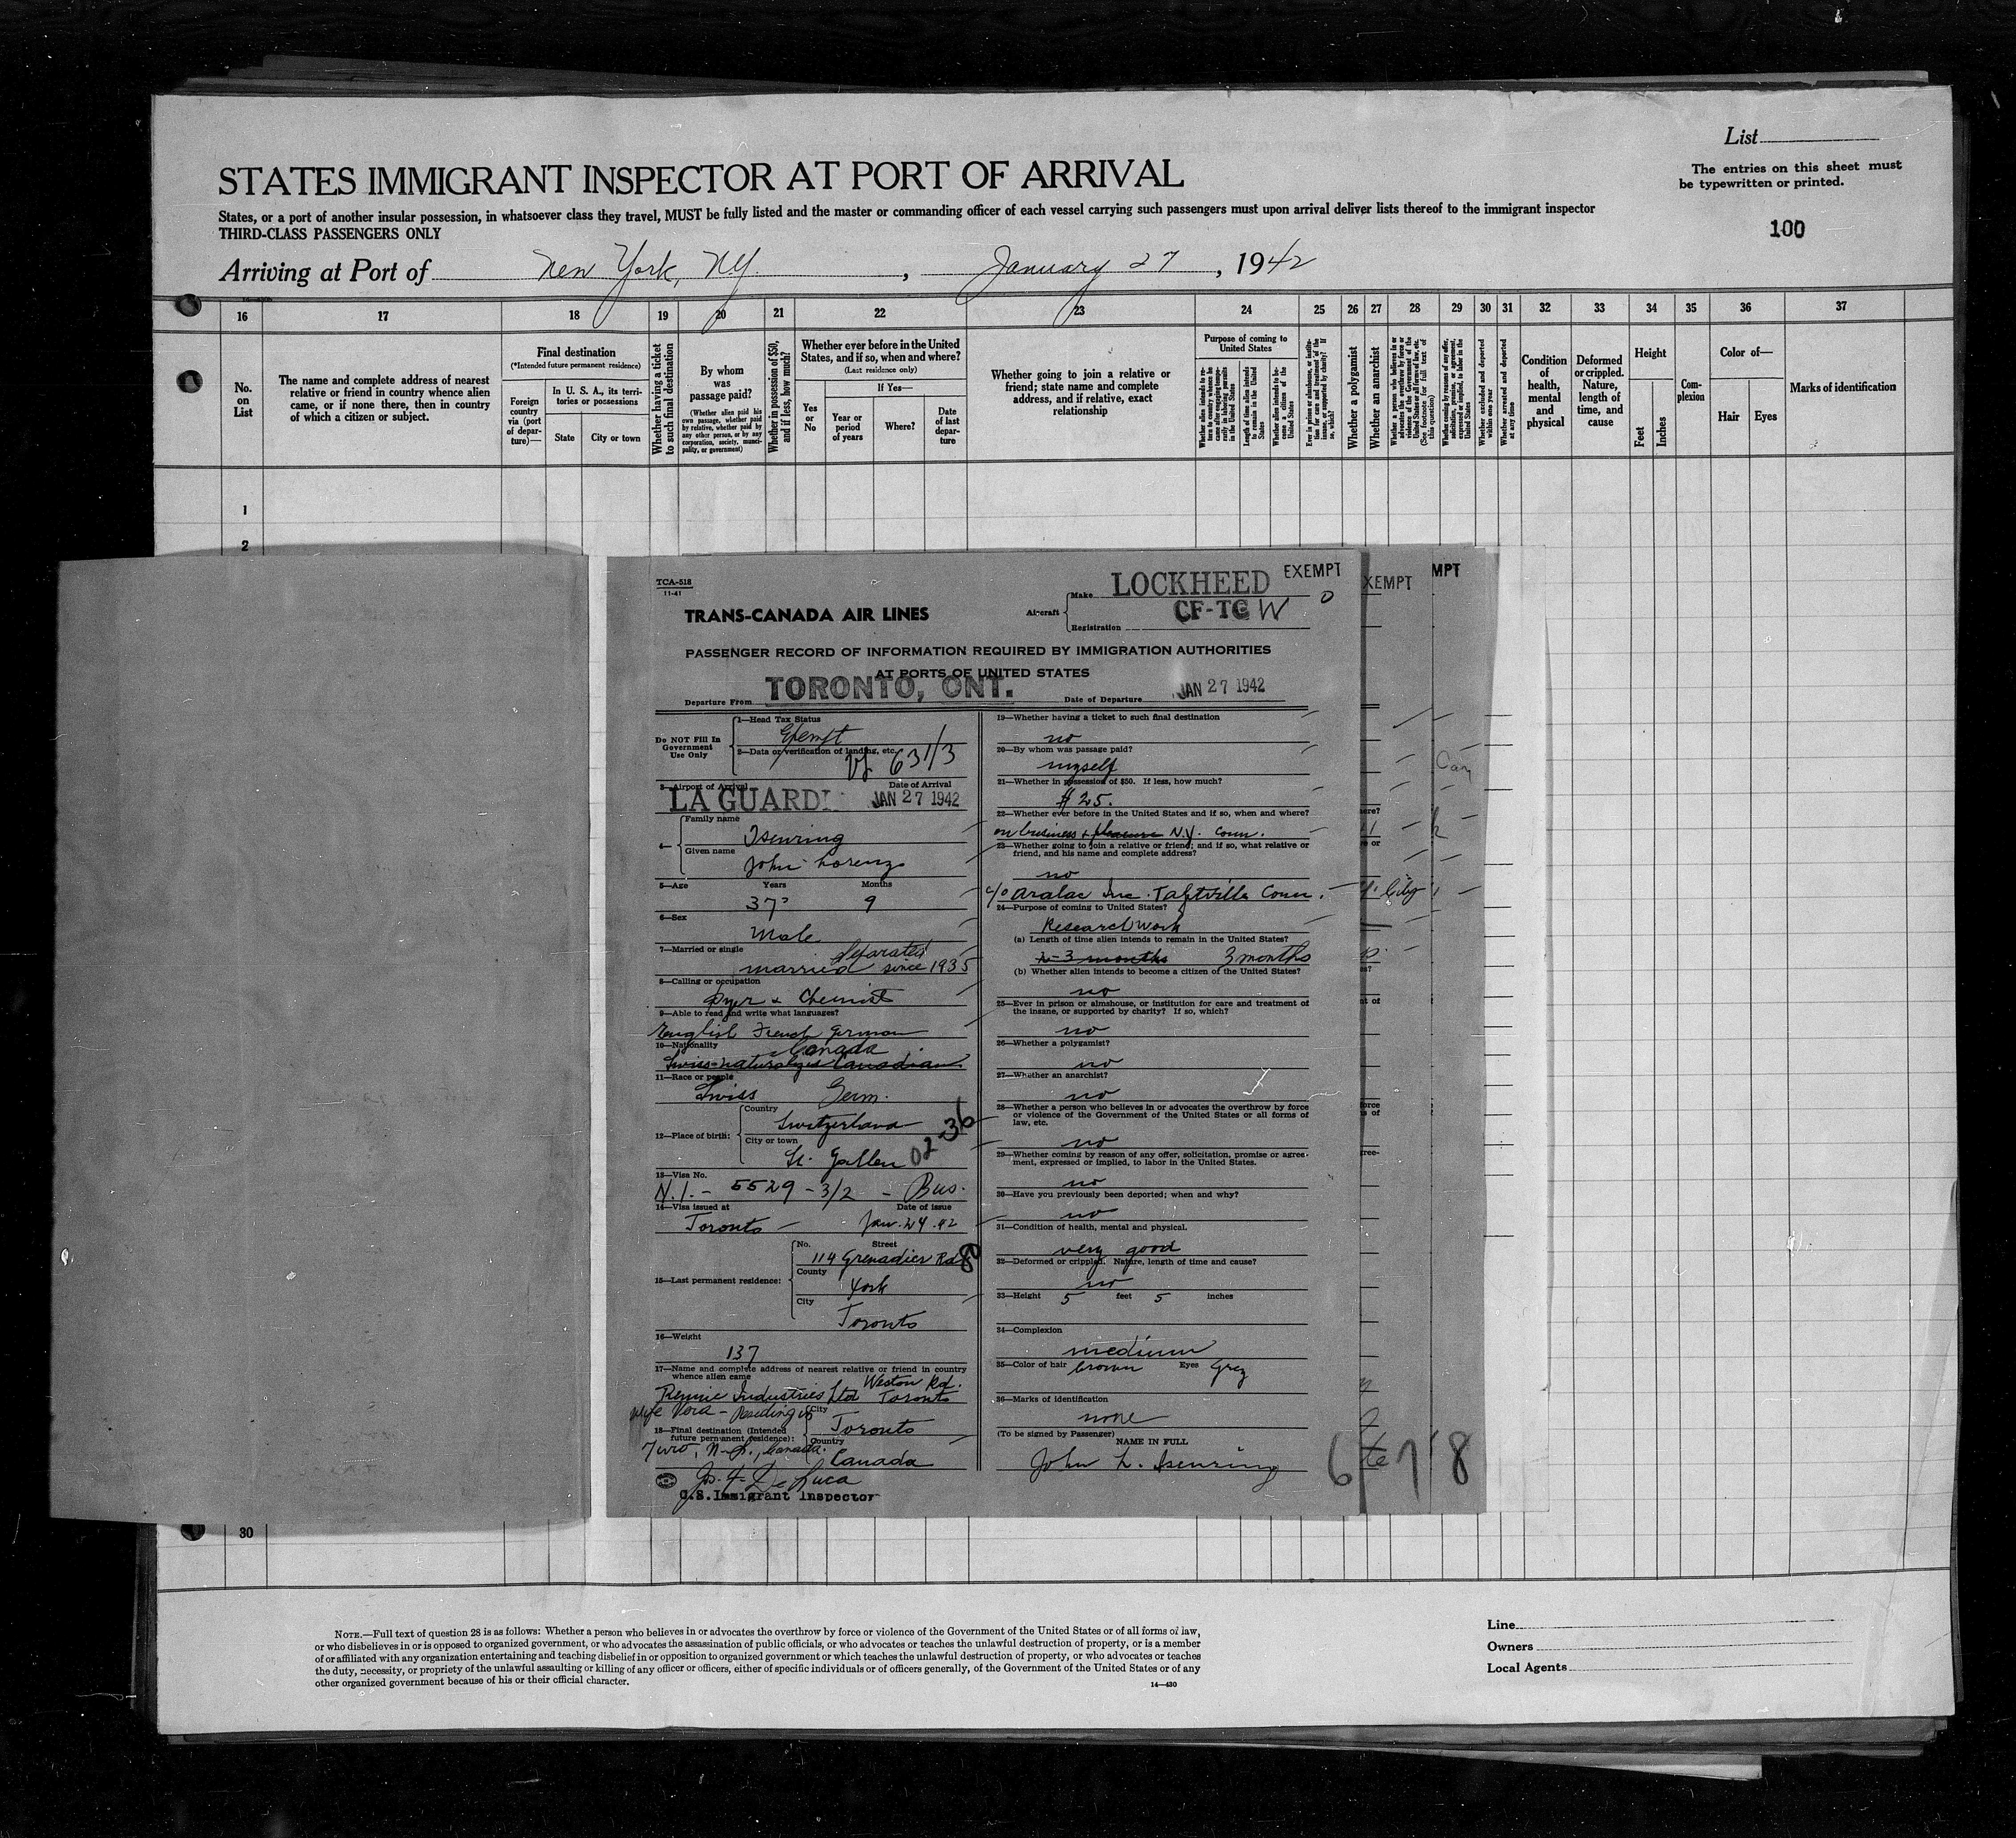 List
STATES IMMIGRANT INSPECTOR AT PORT OF ARRIVAL
The entries on this sheet must
be typewritten or printed.
States, or a port of another insular possession, in whatsoever class they travel, MUST be fully listed and the master or commanding officer of each vessel carrying such passengers must upon arrival deliver lists thereof to the immigrant inspector
THIRD-CLASS PASSENGERS ONLY
100
Arriving at Port of New York, NY. , January 27 , 1942
16 17 18 19 20 21 22 23 24 25 26 27 28 29 30 31 32 33 34 35 36 37
No.
on
List
The name and complete address of nearest
relative or friend in country whence alien
came, or if none there, then in country
of which a citizen or subject.
Final destination
(*Intended future permanent residence)
Foreign
country
via (port
of depar-
ture)—
In U. S. A., its terri-
tories or possessions
State
City or town
Whether having a ticket
to such final destination
By whom
was
passage paid?
(Whether alien paid his
own passage, whether paid
by relative, whether paid by
any other person, or by any
corporation, society, munici-
pality, or government)
Whether in possession of $50,
and if less, how much?
Whether ever before in the United
States, and if so, when and where?
(Last residence only)
Yes
or
No
If Yes—
Year or
period
of years
Where?
Date
of last
depar-
ture
Whether going to join a relative or
friend; state name and complete
address, and if relative, exact
relationship
Purpose of coming to
United States
Whether alien intends to re-
turn to country whence he
came after engaging tempo-
rarily in laboring pursuits
in the United States
Length of time alien intends
to remain in the United
States
Whether alien intends to be-
come a citizen of the
United States
Ever in prison or almshouse, or institu-
tion for care and treatment of the
insane, or supported by charity? If
so, which?
Whether a polygamist
Whether an anarchist
Whether a person who believes in or
advocates the overthrow by force or
violence of the Government of the
United States or all forms of law, etc.
(See footnote for full text of
this question)
Whether coming by reason of any offer,
solicitation, promise, or agreement,
expressed or implied, to labor in the
United States
Whether excluded and deported
within one year
Whether arrested and deported
at any time
Condition
of
health,
mental
and
physical
Deformed
or crippled.
Nature,
length of
time, and
cause
Height
Feet
Inches
Com-
plexion
Color of—
Hair
Eyes
Marks of identification
1
2
TCA-518
11-41
TRANS-CANADA AIR LINES
Aircraft
Make LOCKHEED
EXEMPT
XEMPT
MPT
Registration CF-TCW
PASSENGER RECORD OF INFORMATION REQUIRED BY IMMIGRATION AUTHORITIES
AT PORTS OF UNITED STATES
Departure From TORONTO, ONT.
Date of Departure JAN 27 1942
Do NOT Fill In
Government
Use Only
1—Head Tax Status
Exempt
2—Data or verification of landing, etc.
631/3
3—Airport of Arrival
Date of Arrival
LA GUARDI
JAN 27 1942
4—
Family name
Isenring
Given name
John Lorenz
5—Age
Years
Months
37
9
6—Sex
Male
7—Married or single
married separated since 1935
8—Calling or occupation
Dyer & Chemist
9—Able to read and write what languages?
English French German
10—Nationality
Canada
Swiss-naturalized Canadian
11—Race or people
Swiss Germ.
12—Place of birth:
Country
Switzerland
City or town
St. Gallen
02-36
13—Visa No.
N.I. - 5529 - 3/2 - Bus.
14—Visa issued at
Date of issue
Toronto - Jan. 24. 42
15—Last permanent residence:
No.
Street
114 Grenadier Rd
County
York
City
Toronto
16—Weight
137
17—Name and complete address of nearest relative or friend in country
whence alien came
Weston Rd.
Rennie Industries Ltd Toronto
wife Vera - Residing is
18—Final destination (Intended
future permanent residence):
City
Toronto
Truro, N.S., Canada.
Country
Canada
Jos. F. De Luca
U.S. Immigrant Inspector
19—Whether having a ticket to such final destination
no
20—By whom was passage paid?
myself
21—Whether in possession of $50. If less, how much?
$25.
22—Whether ever before in the United States and if so, when and where?
on business & pleasure N.Y. Conn.
23—Whether going to join a relative or friend; and if so, what relative or
friend, and his name and complete address?
no
c/o Aralac Inc. Taftville Conn.
24—Purpose of coming to United States?
Research Work
(a) Length of time alien intends to remain in the United States?
2-3 months 3 months
(b) Whether alien intends to become a citizen of the United States?
no
25—Ever in prison or almshouse, or institution for care and treatment of
the insane, or supported by charity? If so, which?
no
26—Whether a polygamist?
no
27—Whether an anarchist?
no
28—Whether a person who believes in or advocates the overthrow by force
or violence of the Government of the United States or all forms of
law, etc.
no
29—Whether coming by reason of any offer, solicitation, promise or agree-
ment, expressed or implied, to labor in the United States.
no
30—Have you previously been deported; when and why?
no
31—Condition of health, mental and physical.
very good
32—Deformed or crippled. Nature, length of time and cause?
no
33—Height 5 feet 5 inches
34—Complexion
medium
35—Color of hair brown Eyes Grey
36—Marks of identification
none
(To be signed by Passenger)
NAME IN FULL
John L. Isenring
6 7 8
30
NOTE.—Full text of question 28 is as follows: Whether a person who believes in or advocates the overthrow by force or violence of the Government of the United States or of all forms of law,
or who disbelieves in or is opposed to organized government, or who advocates the assassination of public officials, or who advocates or teaches the unlawful destruction of property, or is a member
of or affiliated with any organization entertaining and teaching disbelief in or opposition to organized government or which teaches the unlawful destruction of property, or who advocates or teaches
the duty, necessity, or propriety of the unlawful assaulting or killing of any officer or officers, either of specific individuals or of officers generally, of the Government of the United States or of any
other organized government because of his or their official character.
14—430
Line
Owners
Local Agents